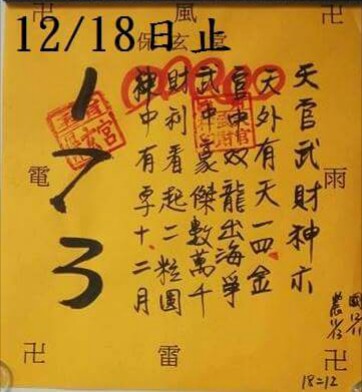 12/18日止
卍 風 卍
保玄宮
天官武財神示
天外有天一四金
官中双龍出海爭
武中豪傑數萬千
財利看起二粒圓
神中有字十、二月
173
電
雨
國12/11
農11/13
卍 雷 卍
18=12